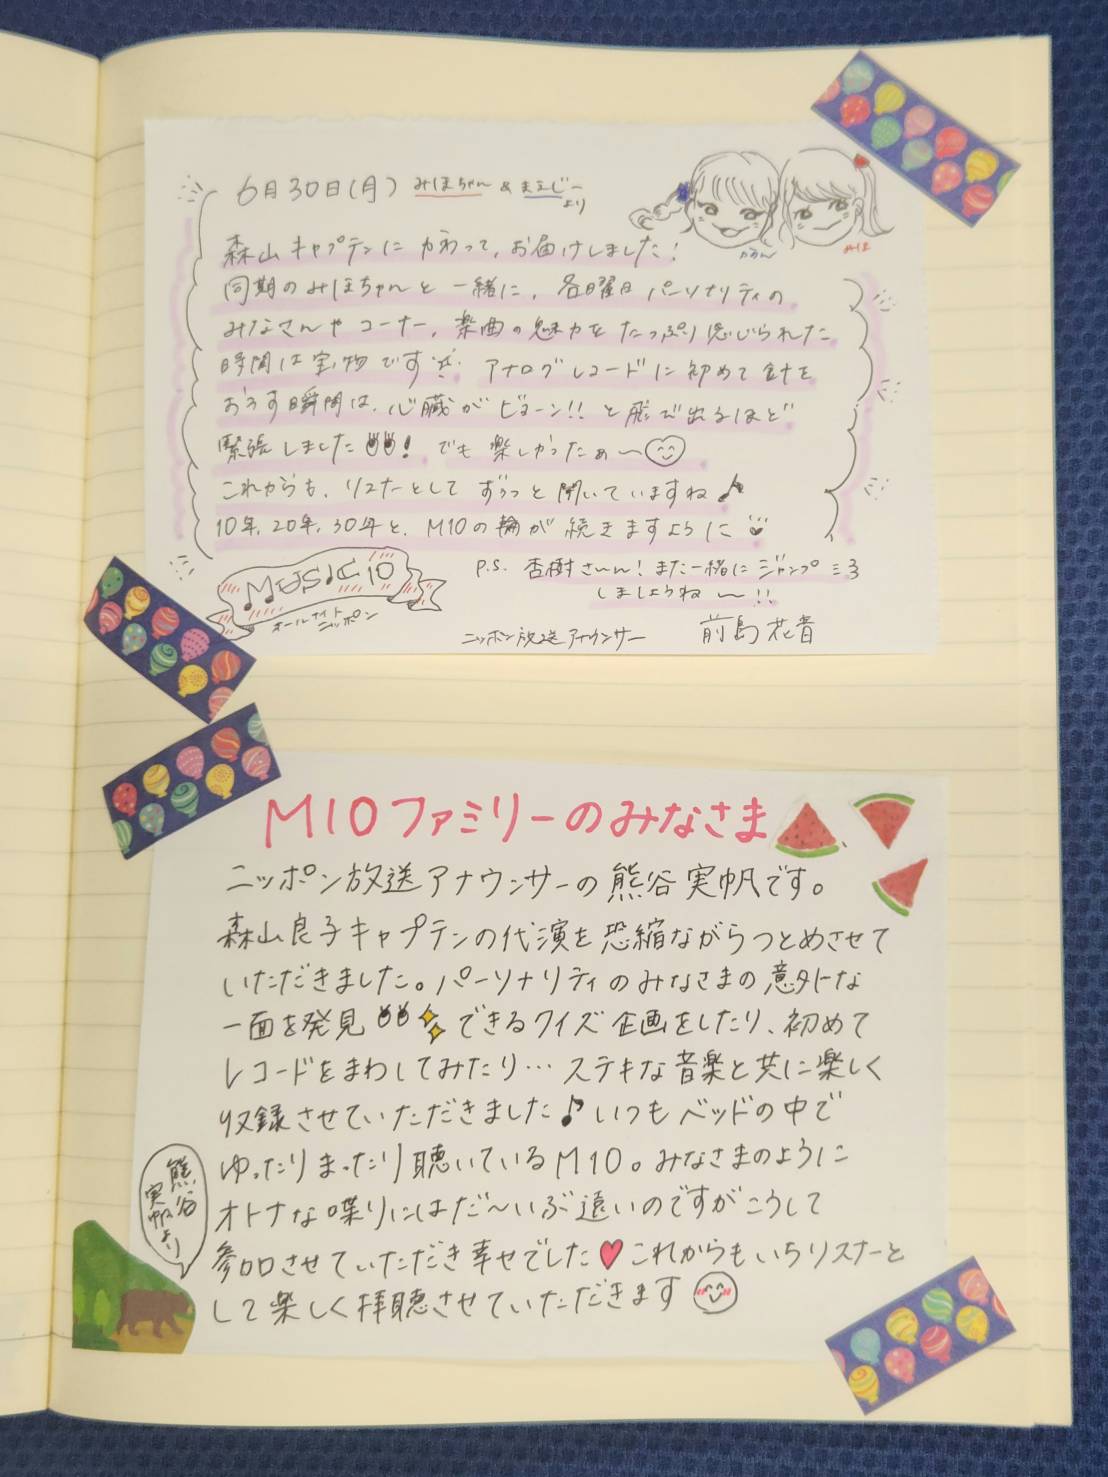 6月30日(月) みほちゃん & まえじーより
かのん
みほ
森山キャプテンにかわって、お届けしました!
同期のみほちゃんと一緒に、各曜日パーソナリティの
みなさんやコーナー、楽曲の魅力をたっぷり感じられた
時間は宝物です アナログレコードに初めて針を
おろす瞬間は、心臓がビヨーン!!と飛び出るほど
緊張しました! でも楽しかったぁ〜
これからも、リスナーとしてずぅっと聞いていますね♪
10年、20年、30年と、M10の輪が続きますように
MUSIC10
オールナイトニッポン
P.S. 杏樹さーん!また一緒にジャンプ
しましょうね〜!!
ニッポン放送アナウンサー 前島花音
M10ファミリーのみなさま
ニッポン放送アナウンサーの熊谷実帆です。
森山良子キャプテンの代演を恐縮ながらつとめさせて
いただきました。パーソナリティのみなさまの意外な
一面を発見できるクイズ企画をしたり、初めて
レコードをまわしてみたり…ステキな音楽と共に楽しく
収録させていただきました♪いつもベッドの中で
ゆったりまったり聴いているM10。みなさまのように
オトナな喋りにはだ〜いぶ遠いのですがこうして
参加させていただき幸せでした♥これからもいちリスナーと
して楽しく拝聴させていただきます
熊谷実帆より